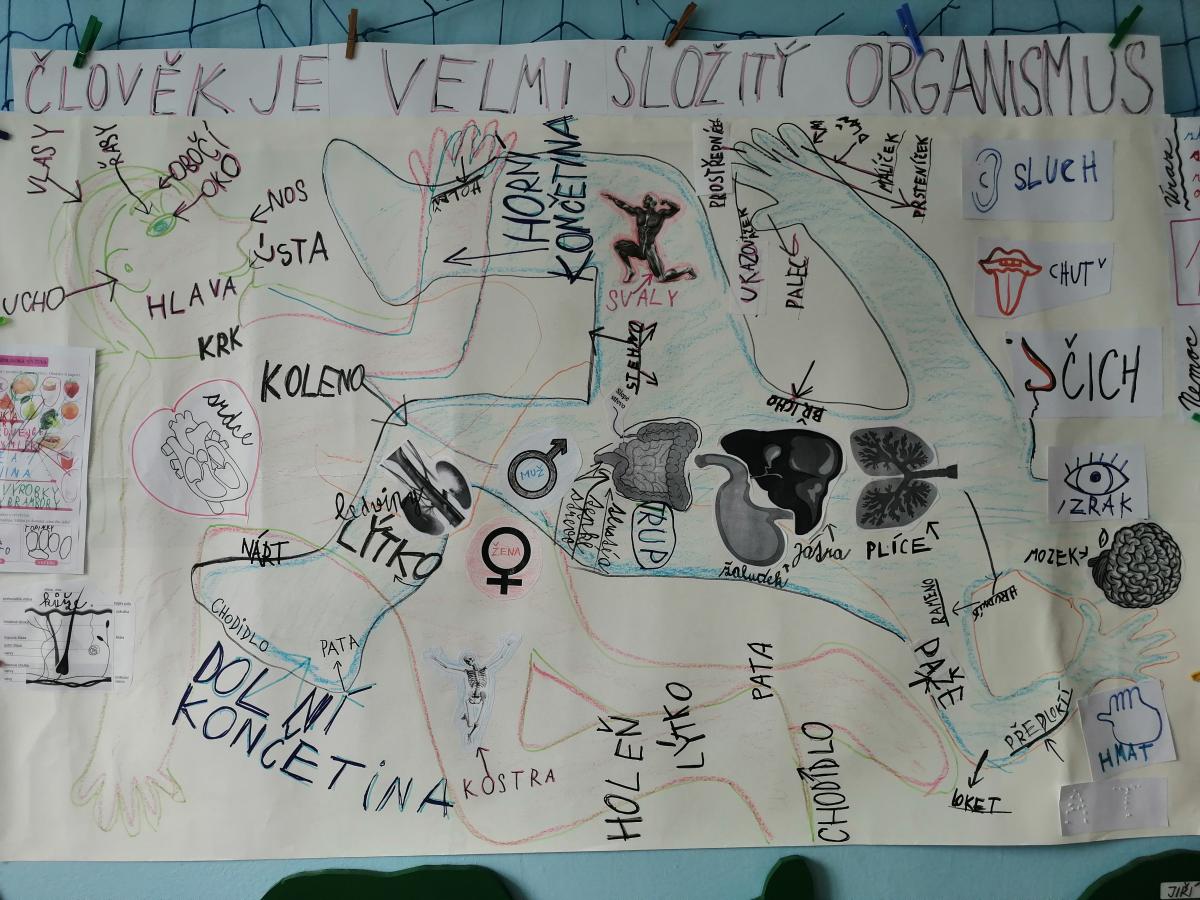 ČLOVĚK JE VELMI SLOŽITÝ ORGANISMUS
VLASY
ŘASY
OBOČÍ
OKO
NOS
ÚSTA
UCHO
HLAVA
KRK
KOLENO
srdce
HORNÍ
KONČETINA
SVALY
PROSTŘEDNÍČEK
UKAZOVÁČEK
PALEC
MALÍČEK
PRSTENÍČEK
BŘICHO
SLUCH
CHUŤ
ČICH
ZRAK
MOZEK
HMAT
Nemoc
ledvina
LÝTKO
MUŽ
ŽENA
TRUP
žaludek
játra
PLÍCE
RAMENO
PAŽE
PŘEDLOKTÍ
LOKET
NÁRT
CHODIDLO
PATA
DOLNÍ
KONČETINA
kůže
KOSTRA
HOLEŇ
LÝTKO
PATA
CHODIDLO
JIŘÍ